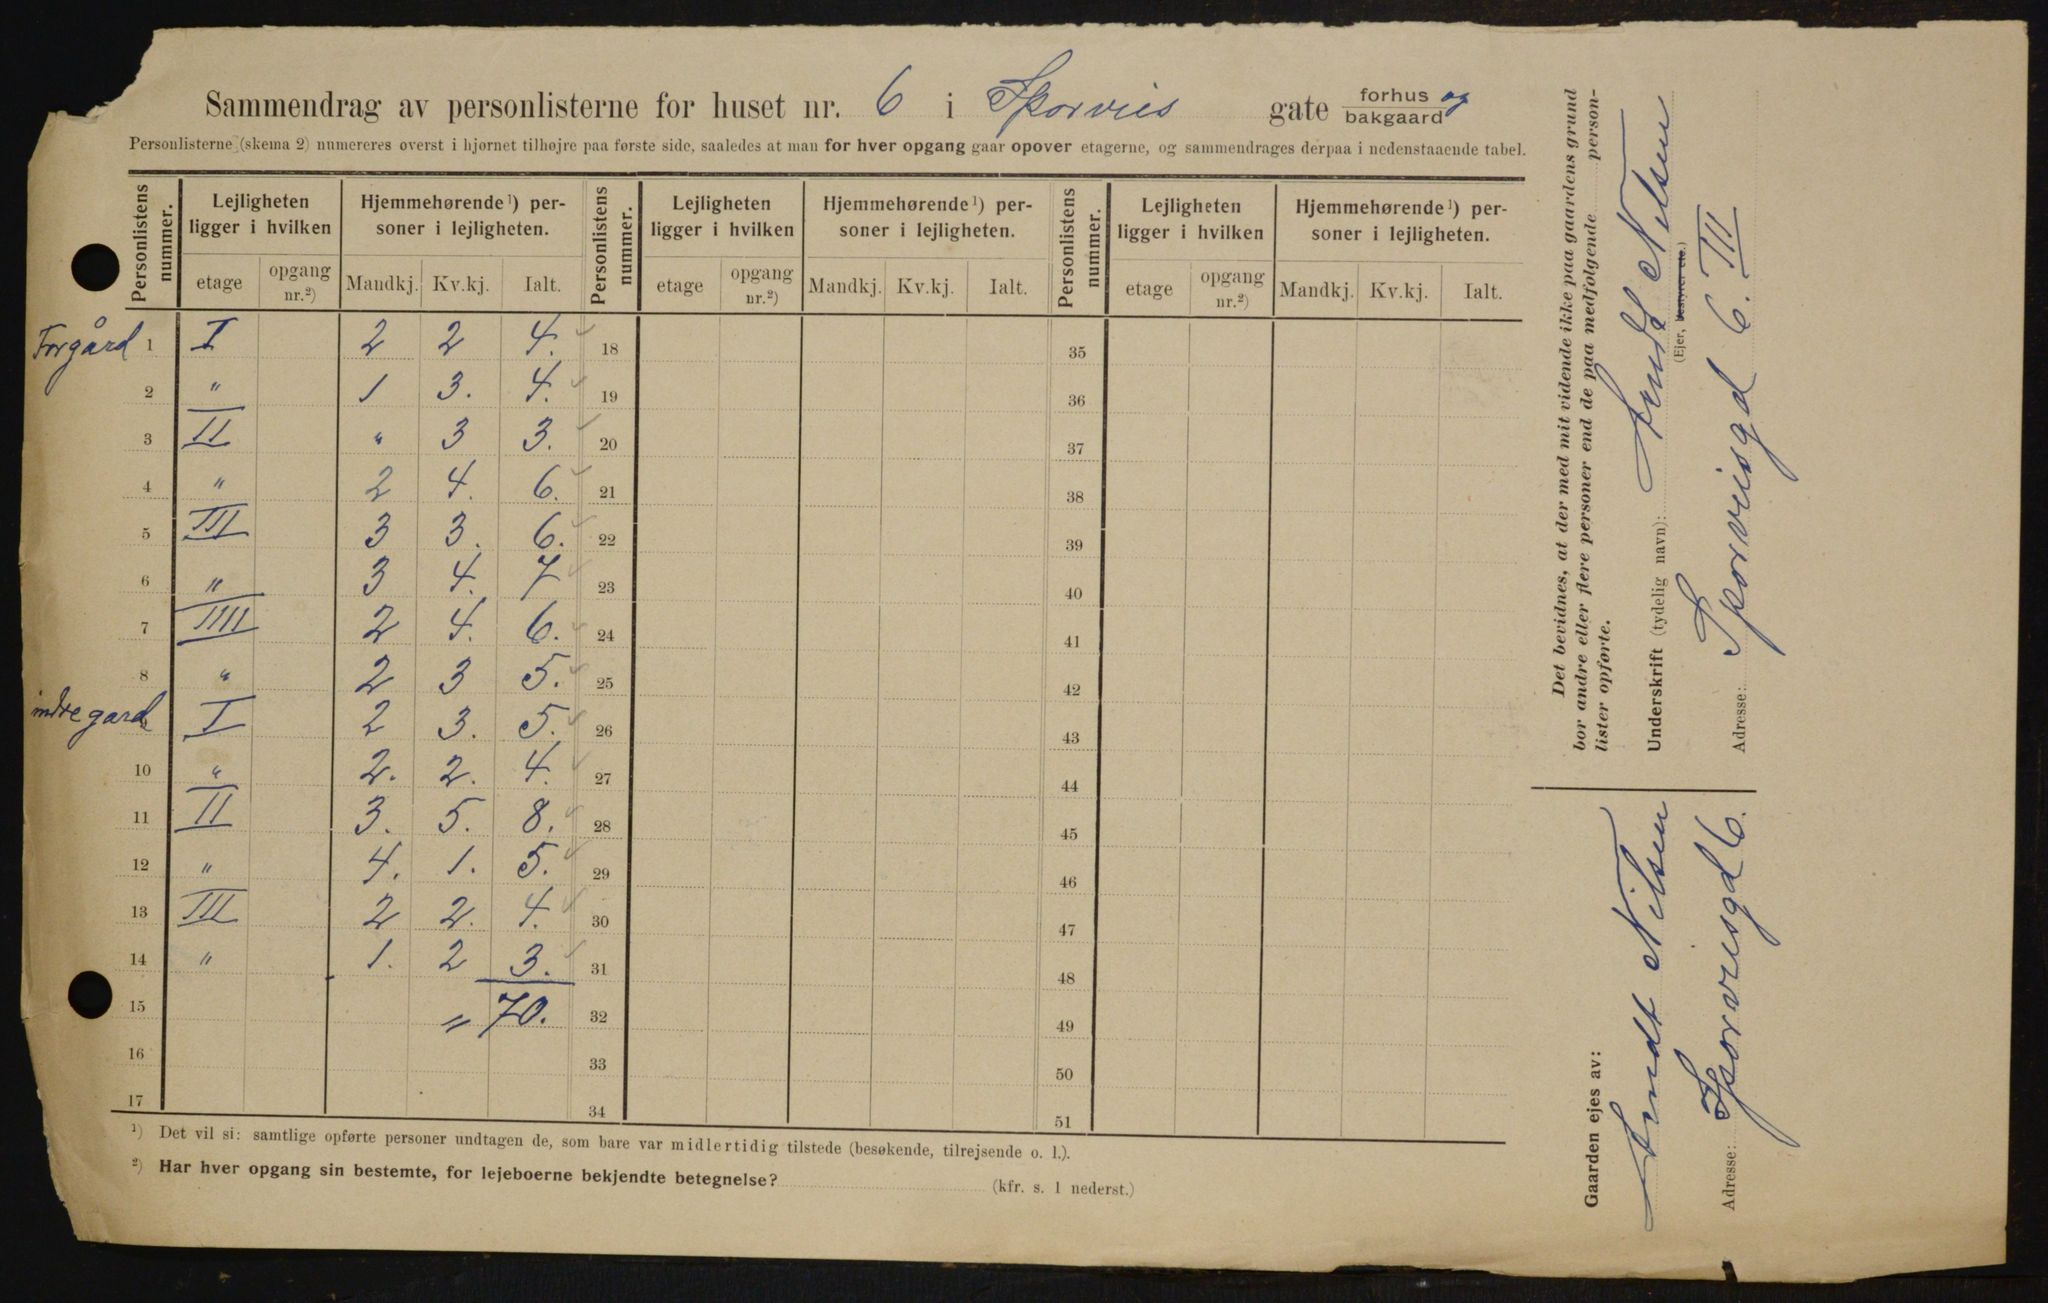 Sammendrag av personlisterne for huset nr. 6 i Sporveis gate forhus og bakgaard
Personlisterne (skema 2) numereres øverst i hjørnet tilhøjre paa første side, saaledes at man for hver opgang gaar opover etagerne, og sammendrages derpaa i nedenstaaende tabel.
Personlistens nummer. Lejligheten ligger i hvilken Hjemmehørende ¹) personer i lejligheten. Personlistens nummer. Lejligheten ligger i hvilken Hjemmehørende ¹) personer i lejligheten. Personlistens nummer. Lejligheten ligger i hvilken Hjemmehørende ¹) personer i lejligheten.
etage opgang nr.²) Mandkj. Kv.kj. Ialt. etage opgang nr.²) Mandkj. Kv.kj. Ialt. etage opgang nr.²) Mandkj. Kv.kj. Ialt.
Forgård 1 I 2 2 4. 18 35
2 " 1 3. 4. 19 36
3 II " 3 3. 20 37
4 " 2 4. 6. 21 38
5 III 3 3. 6. 22 39
6 " 3 4. 7 23 40
7 IIII 2 4. 6. 24 41
8 " 2 3 5. 25 42
indre gard I 2 3. 5. 26 43
10 " 2. 2. 4. 27 44
11 II 3. 5. 8. 28 45
12 " 4. 1. 5. 29 46
13 III 2 2. 4. 30 47
14 " 1. 2 3. 31 48
15 " 70. 32 49
16 33 50
17 34 51
¹) Det vil si: samtlige opførte personer undtagen de, som bare var midlertidig tilstede (besøkende, tilrejsende o. l.).
²) Har hver opgang sin bestemte, for lejeboerne bekjendte betegnelse? (kfr. s. 1 nederst.)
Det bevidnes, at der med mit vidende ikke paa gaardens grund
bor andre eller flere personer end de paa medfølgende person-
lister opførte.
Underskrift (tydelig navn): Arndt Nilsen
(Ejer, bestyrer etc.)
Adresse: Sporveisgd 6. III
Gaarden ejes av:
Arndt Nilsen
Adresse: Sporveisgd 6.